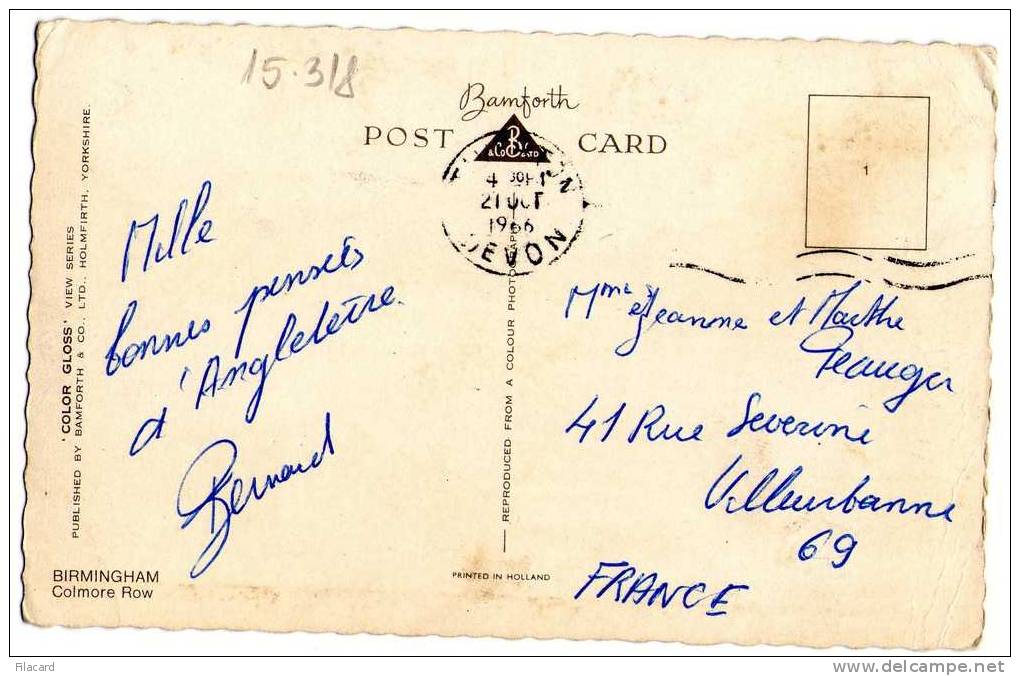 15.318
Bamforth
POST CARD
& Co B LTD
1
4 30 PM
21 OCT
1966
DEVON
Mille
bonnes pensées
d'Angleterre
Bernard
Mmes Jeanne et Marthe
41 Rue Severine
Villeurbanne
69
FRANCE
'COLOR GLOSS' VIEW SERIES
PUBLISHED BY BAMFORTH & CO., LTD., HOLMFIRTH, YORKSHIRE.
REPRODUCED FROM A COLOUR PHOTOGRAPH
BIRMINGHAM
Colmore Row
PRINTED IN HOLLAND
filacard
www.delcampe.net